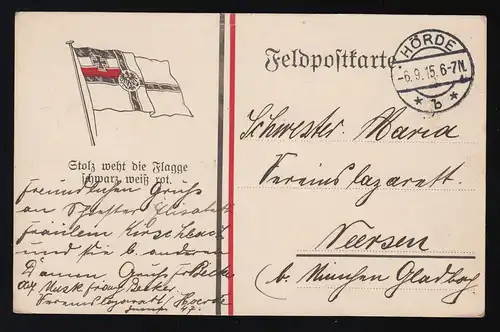 Feldpostkarte
HÖRDE
-6.9.15.6-7N.
* b *
Stolz weht die Flagge
schwarz weiß rot.
Schwester Maria
Vereinslazarett.
Veersen
(b. München Gladbach
Freundlichen Gruss
an Schwester Elisabeth
Fräulein
und die b. anderen
Damen. Gruss Fr Becker
Musk Franz Becker.
Vereinslazarett Hoerde
47.